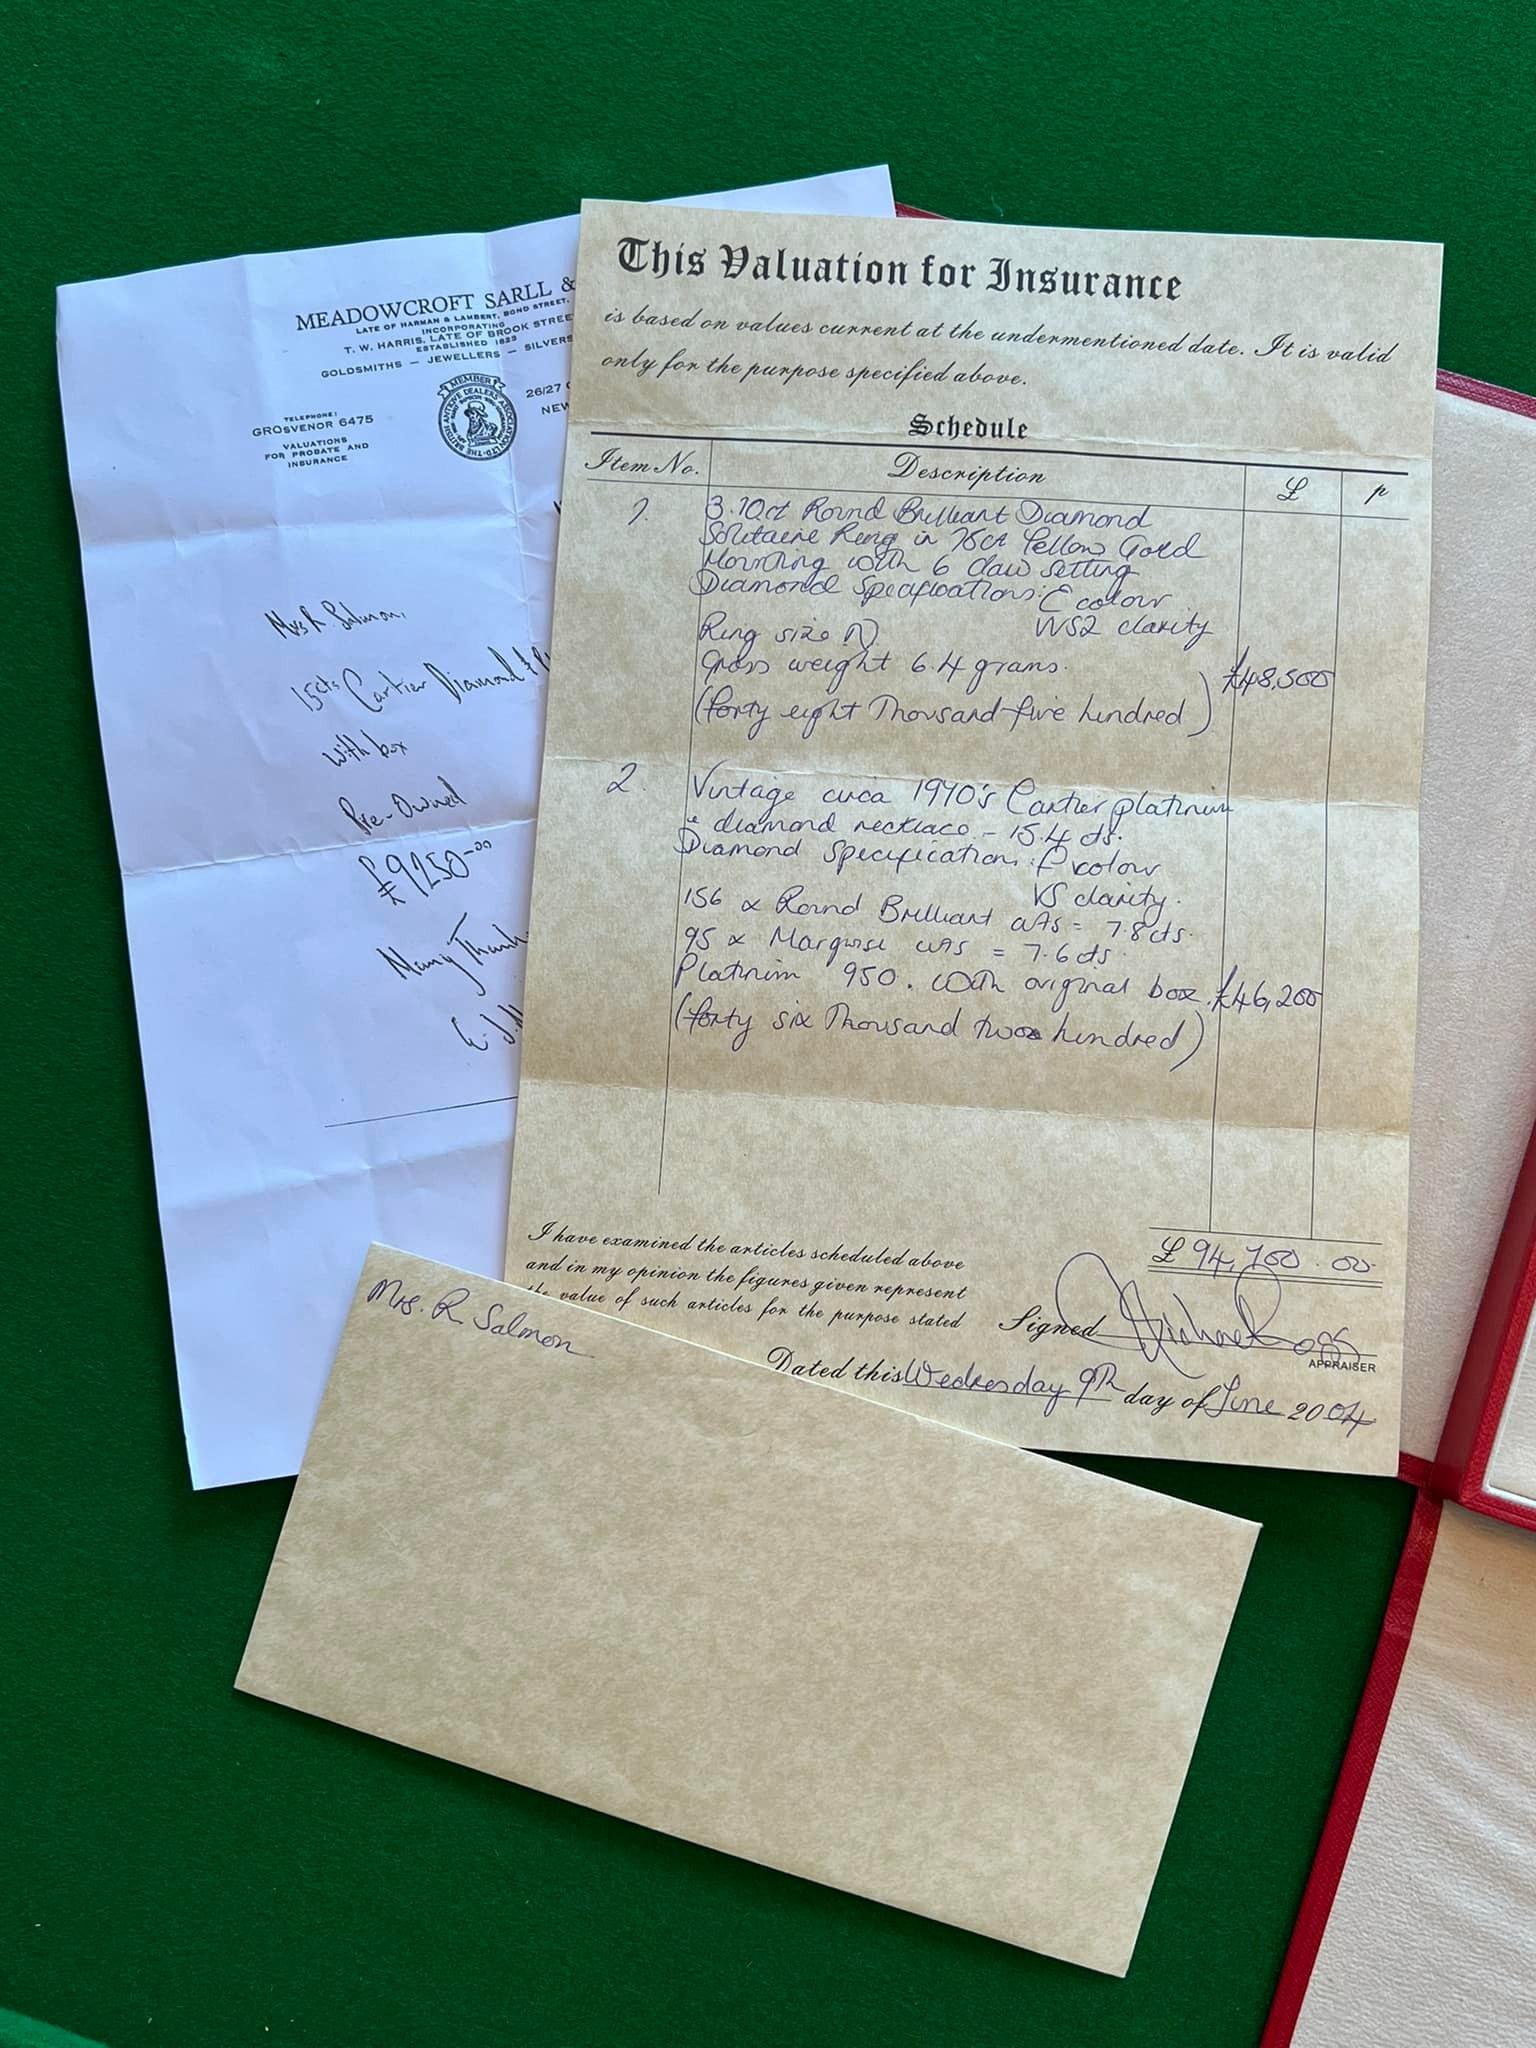 MEADOWCROFT SARLL &
LATE OF HARMAN & LAMBERT, BOND STREET,
INCORPORATING
T. W. HARRIS, LATE OF BROOK STREE
ESTABLISHED 1823
GOLDSMITHS — JEWELLERS — SILVERS
TELEPHONE:
GROSVENOR 6475
VALUATIONS
FOR PROBATE AND
INSURANCE
MEMBER
THE BRITISH ANTIQUE DEALERS ASSOCIATION LTD
26/27
NEW
Mrs R Salmon,
15cts Cartier Diamond &
with box
Pre-Owned
£9250-00
Many Thank
This Valuation for Insurance
is based on values current at the undermentioned date. It is valid
only for the purpose specified above.
Schedule
Item No. Description £ p
1. 3.10ct Round Brilliant Diamond
Solitaire Ring in 18ct Yellow Gold
Mounting with 6 claw setting
Diamond Specifications: E colour
VVS2 clarity
Ring size N
Gross weight 6.4 grams.
£48,500
(forty eight Thousand five hundred)
2. Vintage circa 1970's Cartier platinum
& diamond necklace - 15.4 cts.
Diamond Specification: F colour
VS clarity.
156 x Round Brilliant cuts = 7.8cts.
95 x Marquise cuts = 7.6cts.
Platinum 950. With original box. £46,200
(forty six Thousand two hundred)
£94,700.00
I have examined the articles scheduled above
and in my opinion the figures given represent
the value of such articles for the purpose stated
Signed
APPRAISER
Dated this Wednesday 9th day of June 2004
Mrs. R Salmon